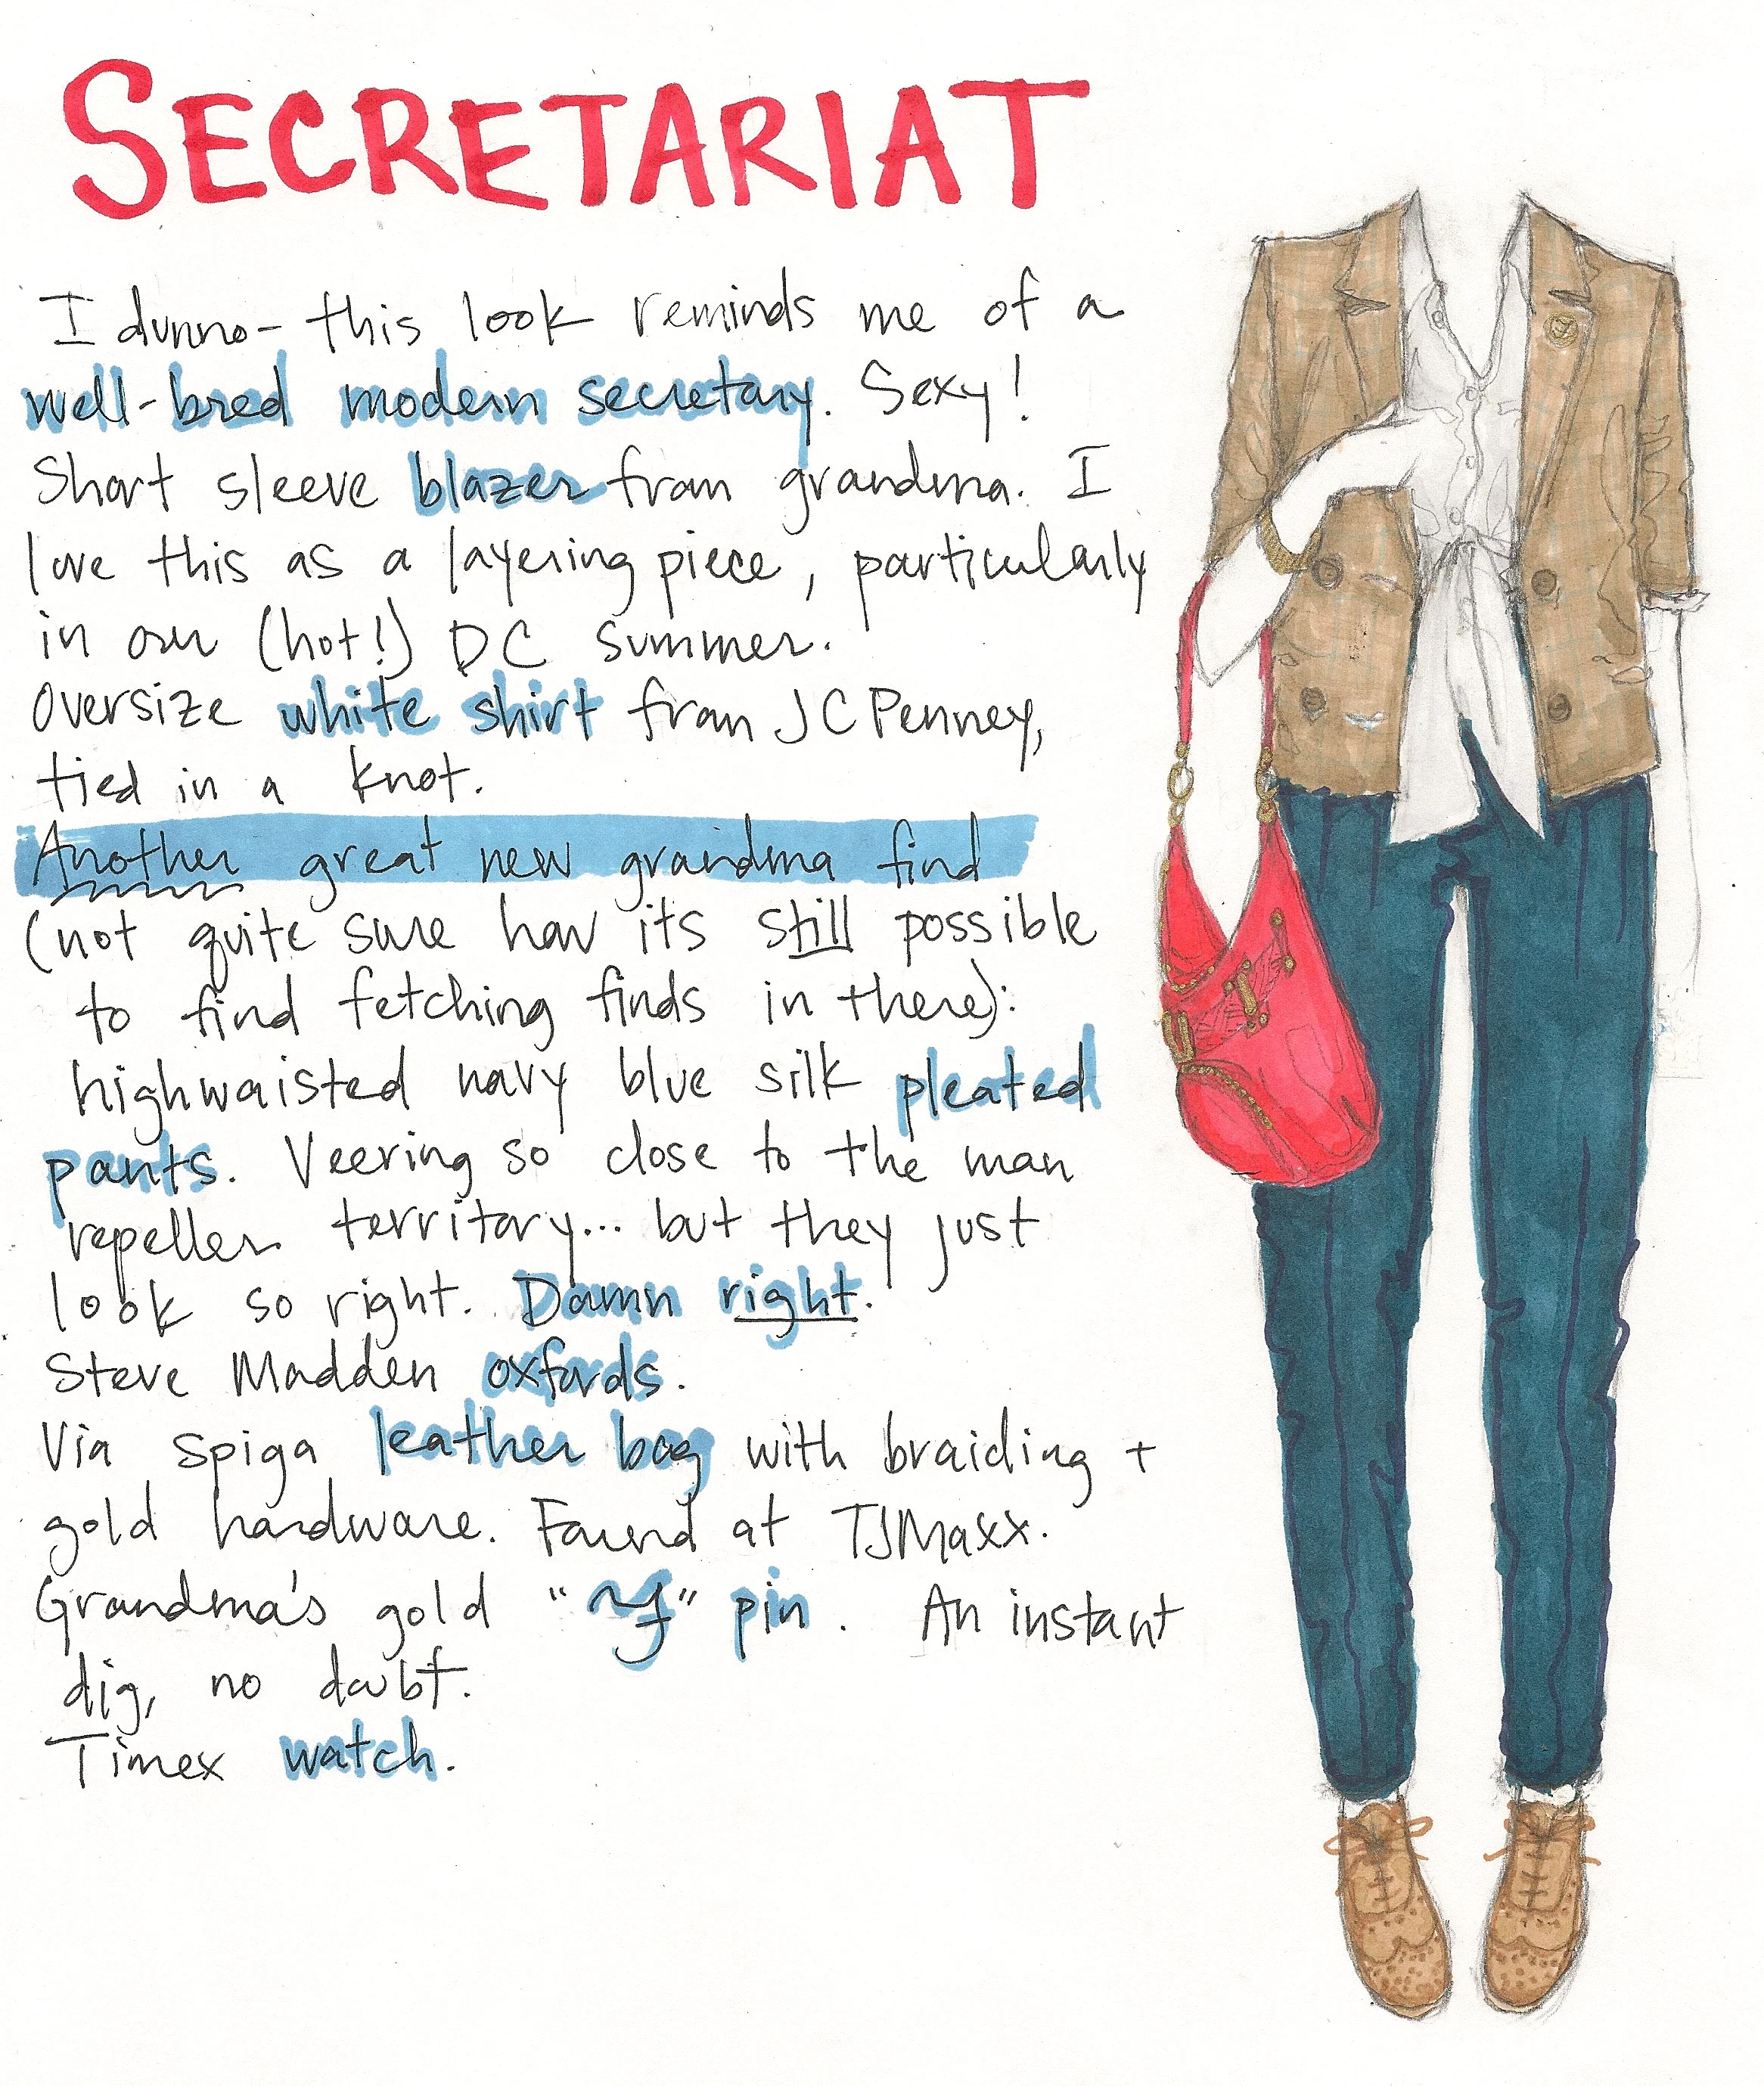 SECRETARIAT
I dunno- this look reminds me of a
well-bred modern secretary. Sexy!
Short sleeve blazer from grandma. I
love this as a layering piece, particularly
in our (hot!) DC summer.
Oversize white shirt from JCPenney,
tied in a knot.
Another great new grandma find
(not quite sure how its still possible
to find fetching finds in there):
highwaisted navy blue silk pleated
pants. Veering so close to the man
repeller territory... but they just
look so right. Damn right.
Steve Madden oxfords.
Via Spiga leather bag with braiding +
gold hardware. Found at TJMaxx.
Grandma's gold " " pin. An instant
dig, no doubt.
Timex watch.